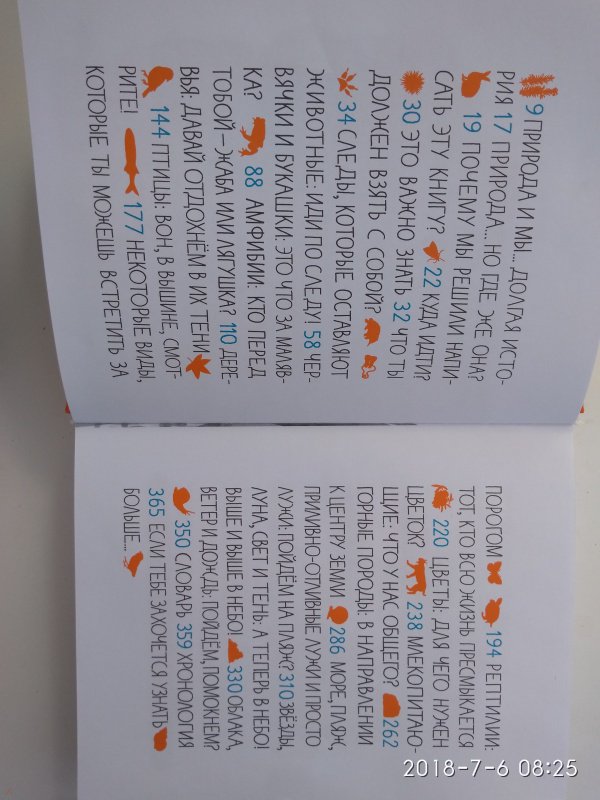 9 ПРИРОДА И МЫ... ДОЛГАЯ ИСТО-
РИЯ 17 ПРИРОДА... НО ГДЕ ЖЕ ОНА?
19 ПОЧЕМУ МЫ РЕШИЛИ НАПИ-
САТЬ ЭТУ КНИГУ? 22 КУДА ИДТИ?
30 ЭТО ВАЖНО ЗНАТЬ 32 ЧТО ТЫ
ДОЛЖЕН ВЗЯТЬ С СОБОЙ?
34 СЛЕДЫ, КОТОРЫЕ ОСТАВЛЯЮТ
ЖИВОТНЫЕ: ИДИ ПО СЛЕДУ! 58 ЧЕР-
ВЯЧКИ И БУКАШКИ: ЭТО ЧТО ЗА МАЛЯВ-
КА? 88 АМФИБИИ: КТО ПЕРЕД
ТОБОЙ – ЖАБА ИЛИ ЛЯГУШКА? 110 ДЕРЕ-
ВЬЯ: ДАВАЙ ОТДОХНЁМ В ИХ ТЕНИ
144 ПТИЦЫ: ВОН, В ВЫШИНЕ, СМОТ-
РИТЕ! 177 НЕКОТОРЫЕ ВИДЫ,
КОТОРЫЕ ТЫ МОЖЕШЬ ВСТРЕТИТЬ ЗА
ПОРОГОМ 194 РЕПТИЛИИ:
ТОТ, КТО ВСЮ ЖИЗНЬ ПРЕСМЫКАЕТСЯ
220 ЦВЕТЫ: ДЛЯ ЧЕГО НУЖЕН
ЦВЕТОК? 238 МЛЕКОПИТАЮ-
ЩИЕ: ЧТО У НАС ОБЩЕГО? 262
ГОРНЫЕ ПОРОДЫ: В НАПРАВЛЕНИИ
К ЦЕНТРУ ЗЕМЛИ 286 МОРЕ, ПЛЯЖ,
ПРИЛИВНО-ОТЛИВНЫЕ ЛУЖИ И ПРОСТО
ЛУЖИ: ПОЙДЁМ НА ПЛЯЖ? 310 ЗВЁЗДЫ,
ЛУНА, СВЕТ И ТЕНЬ: А ТЕПЕРЬ В НЕБО!
ВЫШЕ И ВЫШЕ В НЕБО! 330 ОБЛАКА,
ВЕТЕР И ДОЖДЬ: ПОЙДЁМ, ПОМОКНЕМ?
350 СЛОВАРЬ 359 ХРОНОЛОГИЯ
365 ЕСЛИ ТЕБЕ ЗАХОЧЕТСЯ УЗНАТЬ
БОЛЬШЕ...
2018-7-6 08:25